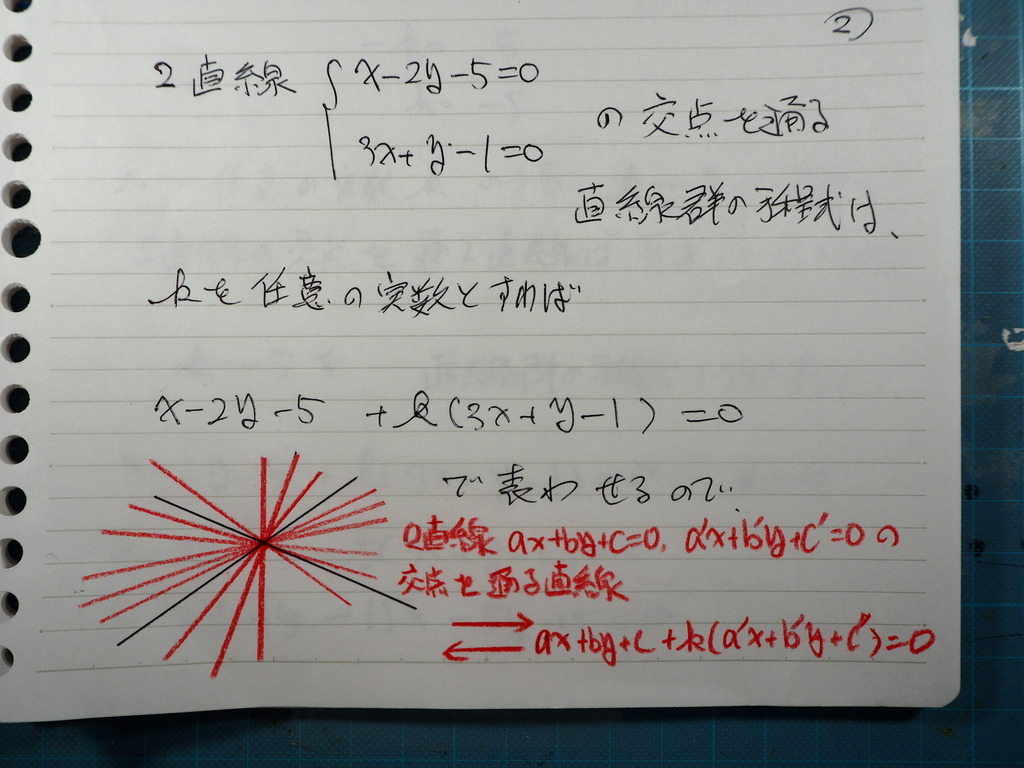 ②
2直線 { x-2y-5=0
3x+y-1=0
の交点を通る
直線群の方程式は、
kを任意の実数とすれば
x-2y-5 +k(3x+y-1) =0
で表わせるので、
2直線 ax+by+c=0, a'x+b'y+c'=0の
交点を通る直線
→
← ax+by+c+k(a'x+b'y+c')=0